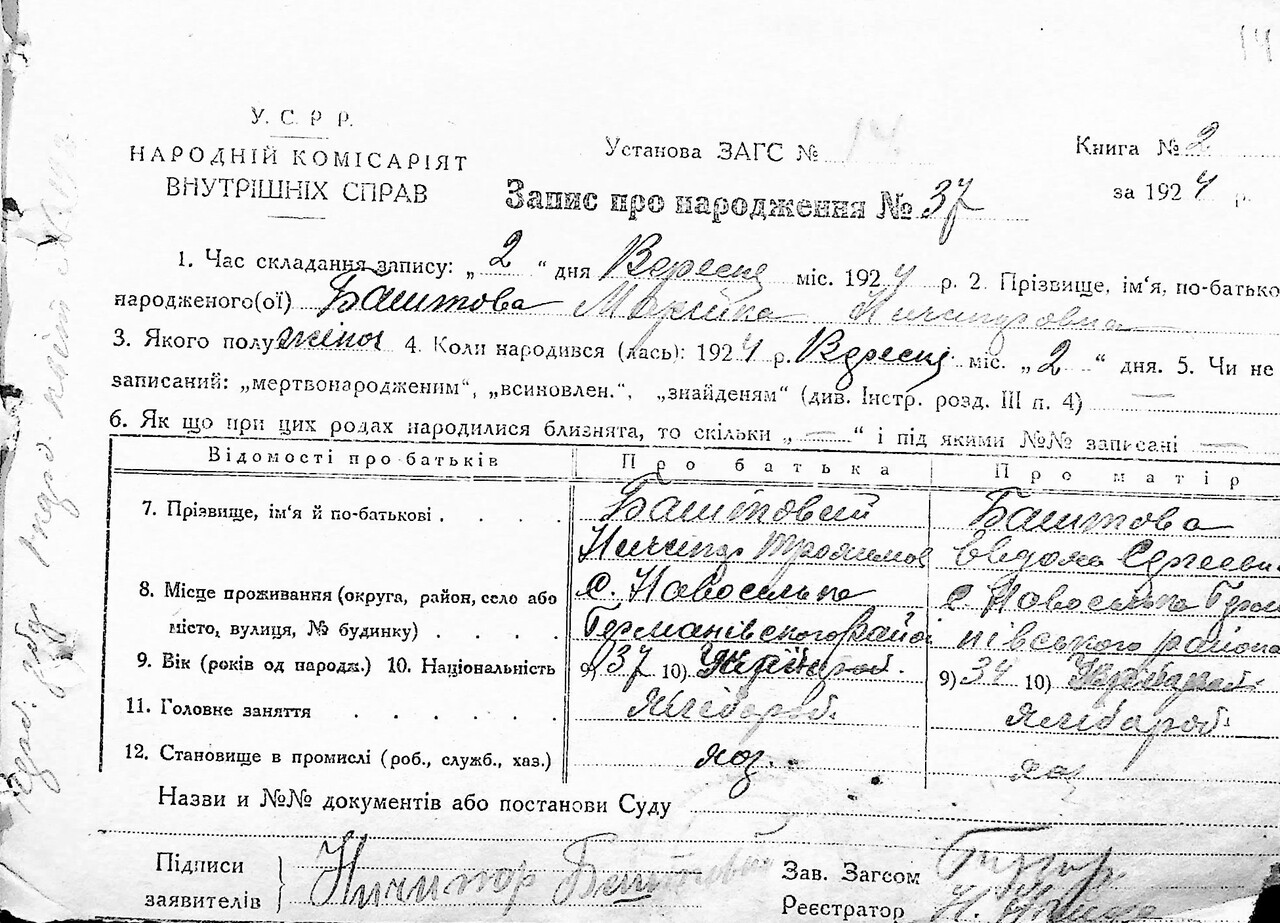 У. С. Р. Р.
НАРОДНІЙ КОМІСАРІЯТ
ВНУТРІШНІХ СПРАВ
Установа ЗАГС № 14
Книга № 2
за 1924 р.
Запис про народження № 37
1. Час складання запису: „ 2 “ дня Вересня міс. 1924 р. 2. Прізвище, ім‘я, по-батькові
народженого(ої) Баштова Марійка Ничипоровна
3. Якого полу жіноч 4. Коли народився (лась): 1924 р. Вересня міс. „ 2 “ дня. 5. Чи не
записаний: „мертвонародженим“, „всиновлен.“, „знайденям“ (див. Інстр. розд. III п. 4) —
6. Як що при цих родах народилися близнята, то скільки „ — “ і під якими №№ записані —
Відомості про батьків Про батька Про матір
7. Прізвище, ім‘я й по-батькові . . . . Баштовий Баштова
Ничипор Трохимов Сергеевн
8. Місце проживання (округа, район, село або с. Новосілка с. Новосілка Герма
місто, вулиця, № будинку) . . . . Германівского Райо нівського района
9. Вік (років од народж.) 10. Національність 9) 37 10) 9) 34 10)
11. Головне заняття . . . . . . Хлібороб. Хлібороб.
12. Становище в промислі (роб., служб., хаз.) хаз. хаз
Назви и №№ документів або постанови Суду
Підписи
заявителів
Ничипор Баштовий
Зав. Загсом
Реєстратор